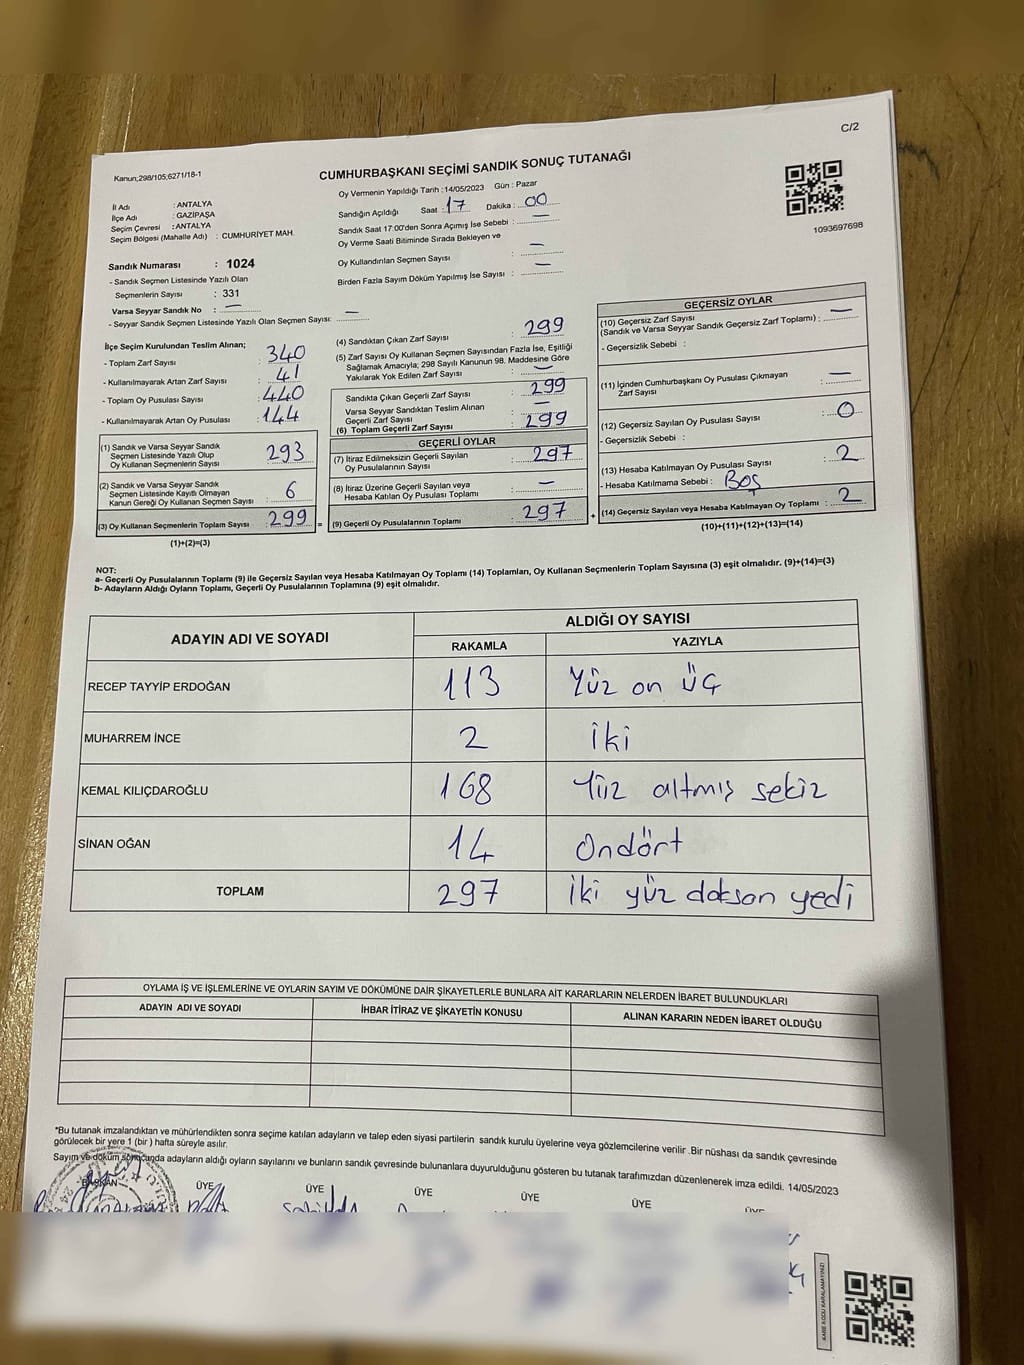 C/2
Kanun;298/105;6271/18-1
CUMHURBAŞKANI SEÇİMİ SANDIK SONUÇ TUTANAĞI
Oy Vermenin Yapıldığı Tarih :14/05/2023 Gün : Pazar
İl Adı : ANTALYA
İlçe Adı : GAZİPAŞA
Seçim Çevresi : ANTALYA
Seçim Bölgesi (Mahalle Adı) : CUMHURİYET MAH.
Sandığın Açıldığı Saat : 17 Dakika : 00
Sandık Saat 17:00'den Sonra Açımış İse Sebebi : —
Oy Verme Saati Bitiminde Sırada Bekleyen ve
Oy Kullandırılan Seçmen Sayısı : —
Birden Fazla Sayım Döküm Yapılmış İse Sayısı : —
1093697698
Sandık Numarası : 1024
- Sandık Seçmen Listesinde Yazılı Olan
Seçmenlerin Sayısı : 331
Varsa Seyyar Sandık No : —
- Seyyar Sandık Seçmen Listesinde Yazılı Olan Seçmen Sayısı: —
İlçe Seçim Kurulundan Teslim Alınan;
- Toplam Zarf Sayısı : 340
- Kullanılmayarak Artan Zarf Sayısı : 41
- Toplam Oy Pusulası Sayısı : 440
- Kullanılmayarak Artan Oy Pusulası : 144
(1) Sandık ve Varsa Seyyar Sandık
Seçmen Listesinde Yazılı Olup
Oy Kullanan Seçmenlerin Sayısı : 293
(2) Sandık ve Varsa Seyyar Sandık
Seçmen Listesinde Kayıtlı Olmayan
Kanun Gereği Oy Kullanan Seçmen Sayısı : 6
(3) Oy Kullanan Seçmenlerin Toplam Sayısı : 299 =
(1)+(2)=(3)
(4) Sandıktan Çıkan Zarf Sayısı : 299
(5) Zarf Sayısı Oy Kullanan Seçmen Sayısından Fazla İse, Eşitliği
Sağlamak Amacıyla; 298 Sayılı Kanunun 98. Maddesine Göre
Yakılarak Yok Edilen Zarf Sayısı : —
Sandıkta Çıkan Geçerli Zarf Sayısı : 299
Varsa Seyyar Sandıktan Teslim Alınan
Geçerli Zarf Sayısı : —
(6) Toplam Geçerli Zarf Sayısı : 299
GEÇERLİ OYLAR
(7) İtiraz Edilmeksizin Geçerli Sayılan
Oy Pusulalarının Sayısı : 297
(8) İtiraz Üzerine Geçerli Sayılan veya
Hesaba Katılan Oy Pusulası Toplamı : —
(9) Geçerli Oy Pusulalarının Toplamı : 297 +
GEÇERSİZ OYLAR
(10) Geçersiz Zarf Sayısı
(Sandık ve Varsa Seyyar Sandık Geçersiz Zarf Toplamı) : —
- Geçersizlik Sebebi :
(11) İçinden Cumhurbaşkanı Oy Pusulası Çıkmayan
Zarf Sayısı : —
(12) Geçersiz Sayılan Oy Pusulası Sayısı : 0
- Geçersizlik Sebebi :
(13) Hesaba Katılmayan Oy Pusulası Sayısı : 2
- Hesaba Katılmama Sebebi : Boş
(14) Geçersiz Sayılan veya Hesaba Katılmayan Oy Toplamı : 2
(10)+(11)+(12)+(13)=(14)
NOT:
a- Geçerli Oy Pusulalarının Toplamı (9) ile Geçersiz Sayılan veya Hesaba Katılmayan Oy Toplamı (14) Toplamları, Oy Kullanan Seçmenlerin Toplam Sayısına (3) eşit olmalıdır. (9)+(14)=(3)
b- Adayların Aldığı Oyların Toplamı, Geçerli Oy Pusulalarının Toplamına (9) eşit olmalıdır.
ADAYIN ADI VE SOYADI ALDIĞI OY SAYISI
RAKAMLA YAZIYLA
RECEP TAYYİP ERDOĞAN 113 Yüz on üç
MUHARREM İNCE 2 iki
KEMAL KILIÇDAROĞLU 168 Yüz altmış sekiz
SİNAN OĞAN 14 Ondört
TOPLAM 297 İki yüz doksan yedi
OYLAMA İŞ VE İŞLEMLERİNE VE OYLARIN SAYIM VE DÖKÜMÜNE DAİR ŞİKAYETLERLE BUNLARA AİT KARARLARIN NELERDEN İBARET BULUNDUKLARI
ADAYIN ADI VE SOYADI İHBAR İTİRAZ VE ŞİKAYETİN KONUSU ALINAN KARARIN NEDEN İBARET OLDUĞU
*Bu tutanak imzalandıktan ve mühürlendikten sonra seçime katılan adayların ve talep eden siyasi partilerin sandık kurulu üyelerine veya gözlemcilerine verilir .Bir nüshası da sandık çevresinde
görülecek bir yere 1 (bir ) hafta süreyle asılır.
Sayım ve döküm sonucunda adayların aldığı oyların sayılarını ve bunların sandık çevresinde bulunanlara duyurulduğunu gösteren bu tutanak tarafımızdan düzenlenerek imza edildi. 14/05/2023
BAŞKAN ÜYE ÜYE ÜYE ÜYE ÜYE ÜYE
KARE KODU KARALAMAYINIZ!